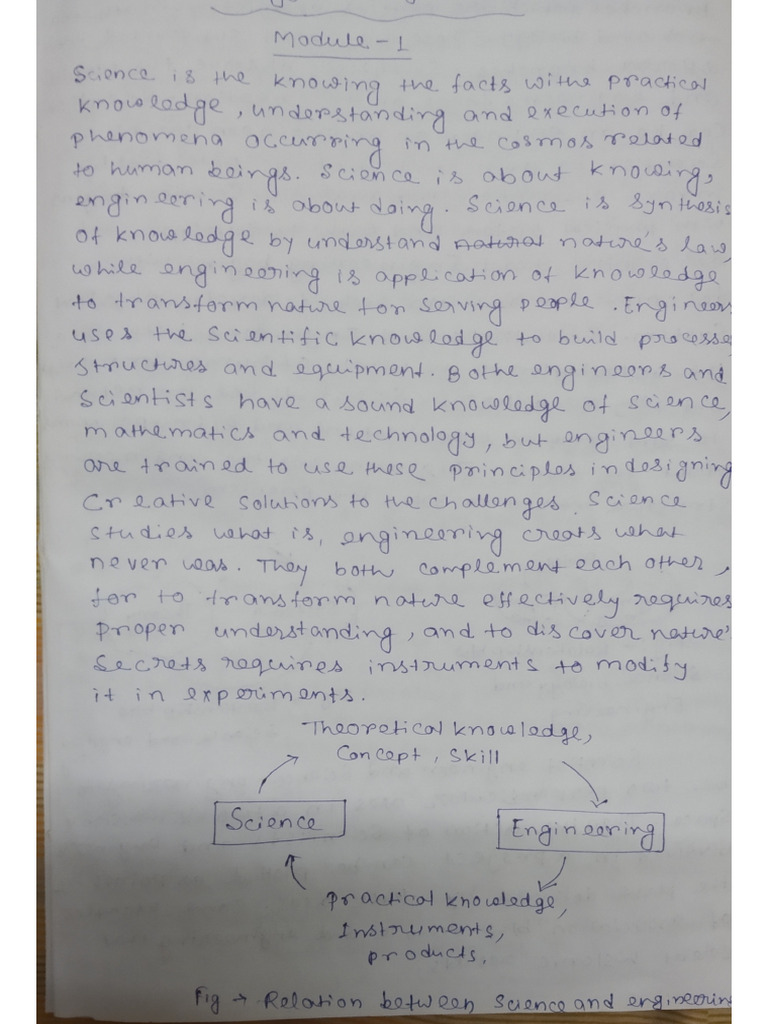 Module - 1
Science is the knowing the facts withe practical
knowledge, understanding and execution of
phenomena occurring in the cosmos related
to human beings. Science is about knowing,
engineering is about doing. Science is synthesis
of knowledge by understand natural nature's law,
while engineering is application of knowledge
to transform nature for serving people. Engineers
uses the scientific knowledge to build processe
structures and equipment. Bothe engineers and
Scientists have a sound knowledge of science,
mathematics and technology, but engineers
are trained to use these principles in designing
Creative solutions to the challenges. Science
studies what is, engineering creats what
never was. They both complement each other,
for to transform nature effectively requires
proper understanding, and to discover nature's
secrets requires instruments to modify
it in experiments.
Theoretical knowledge,
Concept, Skill
Science
Engineering
practical knowledge,
Instruments,
products.
Fig → Relation between science and engineerin